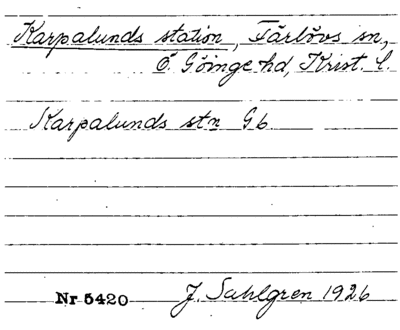 Karpalunds station, Färlövs sn,
Ö. Göinge hd, Krist. l.
Karpalunds stn Gb
Nr 5420 J. Sahlgren 1926